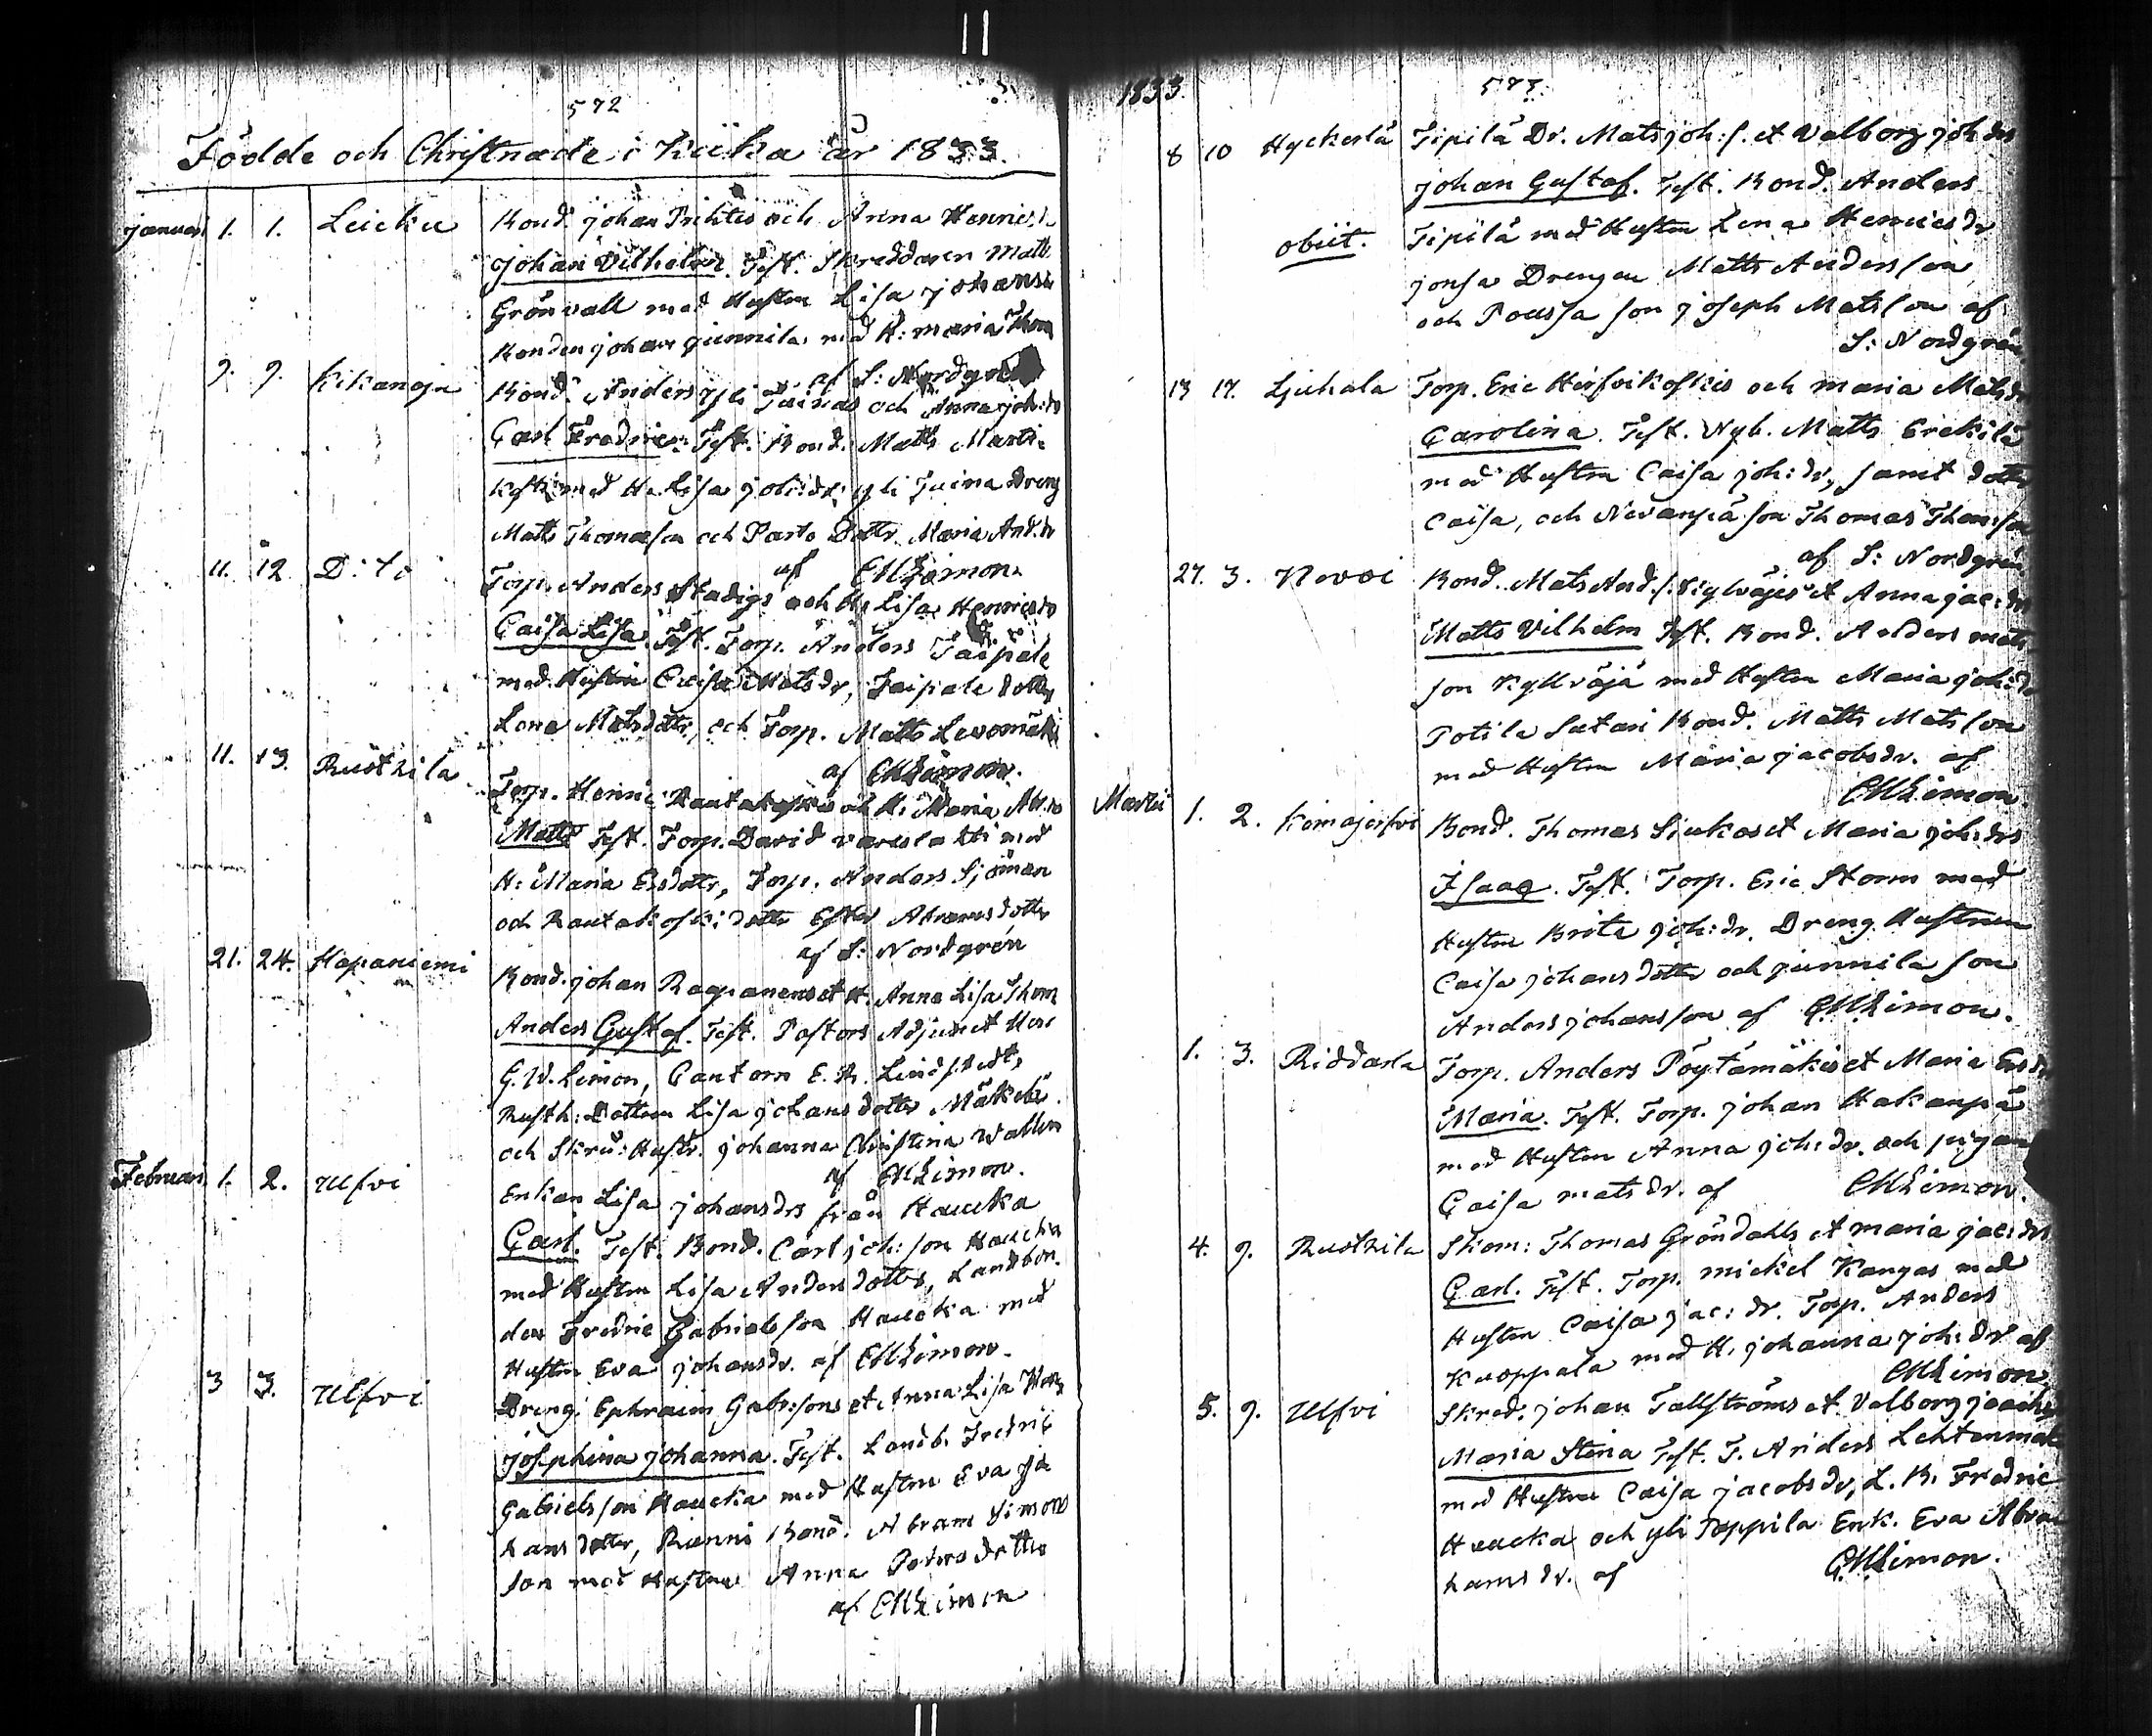 572
Födde och Christnade i Kiika år 1833.
Januari 1. 1. Leikku Bond. Johan Prihtis och Anna Henricsdr
Johan Vilhelm. Test. Skreddaren Matts
Grönvall med Hustru Lisa Johansdr
Bonden Johan Junnila med H: Maria Thom
af S: Nordgrén
9. 9. Kikanoja Bond. Anders Yli Juinas och Anna Joh:dr
Carl Fredric. Test. Bond. Matts Marti-
koski med H. Lisa Joh:dr, Yli Juina Dreng
Matts Thomasson och Parto Dottr. Maria And.dr
af GWLimon.
11. 12 Dito Torp. Anders Stadigs och H. Lisa Henricsdr
Caisa Lisa. Test. Torp. Anders Taipale
med Hustru Caisa Matsdr, Taipale dotter
Lena Matsdotter, och Torp. Matts Levomäki
af GWLimon.
11. 13. Ruotzila Torp. Henric Rautakoskis och H. Maria Abr.dr
Matts Test. Torp. David Vareslahti med
H: Maria Ersdottr, Torp. Anders Sjöman
och Rautakoski dotter Ester Abramsdotter
af S: Nordgrén
21. 24. Hapaniemi Bond. Johan Raganens et H. Anna Lisa Thom
Anders Gustaf. Test. Pastors Adjunct Herr
G. W. Limon, Cantorn E. A. Lindstedt,
Rusth: Dottren Lisa Johansdotter Mäkelä.
och Skrä: Hustr. Johanna Christina Wallen
af GWLimon.
Februari 1. 2. Ulfvi Enkan Lisa Johansdrs från Haucka
Carl. Test. Bond. Carl Joh:son Haucka
med Hustru Lisa Andersdotter, Landbon-
den Fredric Gabrielsson Haucka med
Hustru Eva Johansdr. af GWLimon.
3 3. Ulfvi Dreng. Ephraim Gabr:sons et Anna Lisa
Josephina Johanna. Test. Landb. Fredric
Gabrielsson Haucka med Hustru Eva Jo
hansdotter, Rienni Bond. Abram Simons
son med Hustru Anna Petersdotter
af GWLimon
1833. 573.
8 10 Hyckerlä Tipilä Dr. Mats Joh:s. et Valborg Joh drs
Johan Gustaf. Test. Bond. Anders
obiit. Tipilä med Hustru Lena Henricsdr
Jonsa Drengen Matts Andersson
och Poussa son Joseph Matsson af
S: Nordgrén
13 17. Liuhala Torp. Eric Hirfvikoskis och Maria Matsdr
Carolina. Test. Nyb. Matts Erckilä
med Hustru Caisa Joh:dr, samt dotter
Caisa, och Nevanpä son Thomas Thomson
af S: Nordgrén
27. 3. Novoi Bond. Mats And.s. Kyllväjes et Anna Jac:drs
Matts Vilhelm Test. Bond. Anders Mats
son Kyllväjä med Hustru Maria Joh:dr
Potila Sutari Bond. Matts Matsson
med Hustru Maria Jacobsdr. af
GWLimon
Martii 1. 2. Kimajerfvi Bond. Thomas Siukas et Maria Joh:drs
Isaac. Test. Torp. Eric Storm med
Hustru Brita Joh:dr. Dreng Hustrun
Caisa Johansdotter och Junnila son
Anders Johansson af GWLimon.
1. 3. Riddarla Torp. Anders Pöytämäkis et Maria Ersdr
Maria. Test. Torp. Johan Hakanpä
med Hustru Anna Joh:dr. och pigan
Caisa Matsdr. af GWLimon.
4. 9. Ruotzila Skom: Thomas Gröndahls et Maria Jac:drs
Carl. Test. Torp. Mickel Kangas med
Hustru Caisa Jac:dr. Torp. Anders
Kuoppala med H. Johanna Joh:dr af
GWLimon
5. 9. Ulfvi Skred. Johan Tallströms et Valborg
Maria Stina Test. T. Anders Lehtenmäk
med Hustru Caisa Jacobsdr, L. B. Fredric
Haucka och Yli Toppila Enk. Eva Abra
hamsdr. af GWLimon.